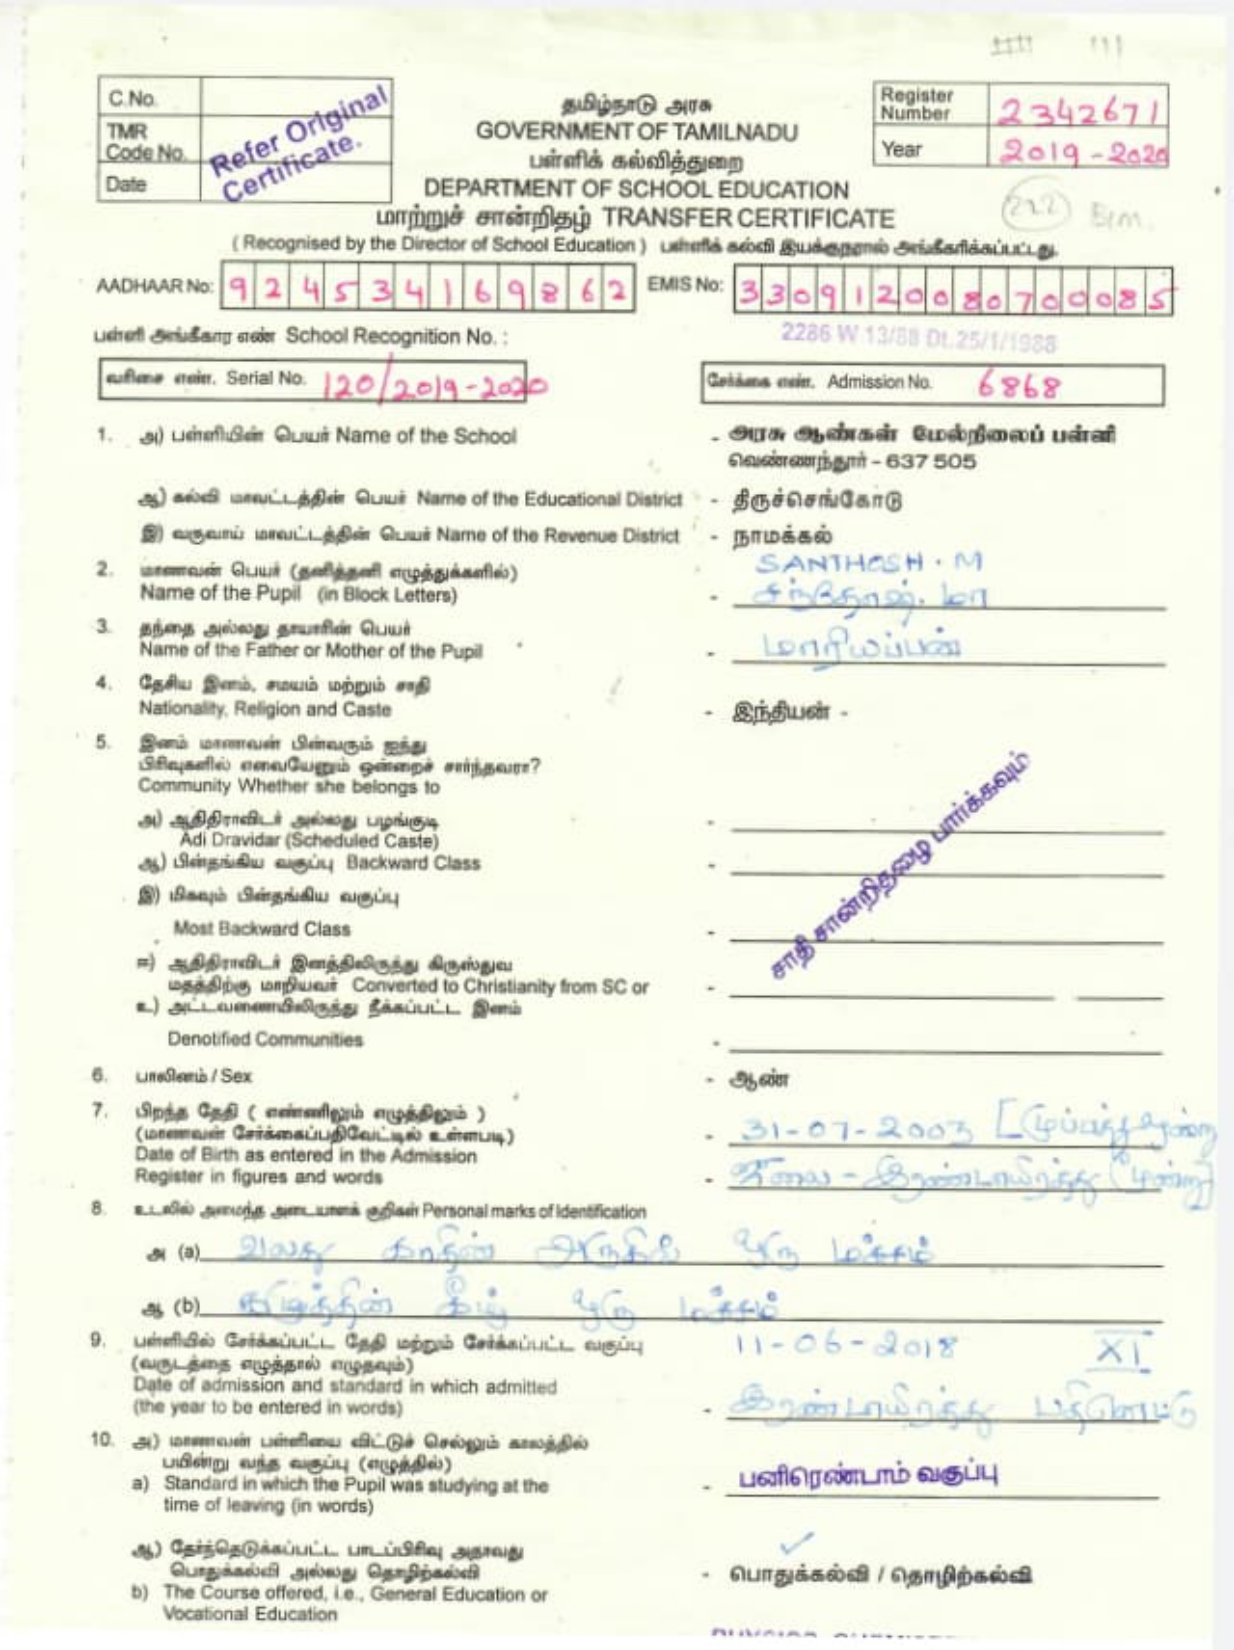 C.No.
TMR
Code No.
Date
Refer Original
Certificate.
தமிழ்நாடு அரசு
GOVERNMENT OF TAMILNADU
பள்ளிக் கல்வித்துறை
DEPARTMENT OF SCHOOL EDUCATION
மாற்றுச் சான்றிதழ் TRANSFER CERTIFICATE
Register Number 2342671
Year 2019-2020
222
( Recognised by the Director of School Education ) பள்ளிக் கல்வி இயக்குநரால் அங்கீகரிக்கப்பட்டது.
AADHAAR No: 924534169862 EMIS No: 3309120080700085
பள்ளி அங்கீகார எண் School Recognition No. : 2286 W 13/88 Dt.25/1/1988
வரிசை எண். Serial No. 120/2019-2020 சேர்க்கை எண். Admission No. 6868
1. அ) பள்ளியின் பெயர் Name of the School - அரசு ஆண்கள் மேல்நிலைப் பள்ளி
வெண்ணந்தூர் - 637 505
ஆ) கல்வி மாவட்டத்தின் பெயர் Name of the Educational District - திருச்செங்கோடு
இ) வருவாய் மாவட்டத்தின் பெயர் Name of the Revenue District - நாமக்கல்
2. மாணவன் பெயர் (தனித்தனி எழுத்துக்களில்) SANTHOSH. M
Name of the Pupil (in Block Letters) - சந்தோஷ். மா
3. தந்தை அல்லது தாயாரின் பெயர்
Name of the Father or Mother of the Pupil - மாரியப்பன்
4. தேசிய இனம், சமயம் மற்றும் சாதி
Nationality, Religion and Caste - இந்தியன் -
5. இனம் மாணவன் பின்வரும் ஐந்து
பிரிவுகளில் எவையேனும் ஒன்றைச் சார்ந்தவரா?
Community Whether she belongs to
சாதி சான்றிதழை பார்க்கவும்
அ) ஆதிதிராவிடர் அல்லது பழங்குடி
Adi Dravidar (Scheduled Caste) -
ஆ) பின்தங்கிய வகுப்பு Backward Class -
இ) மிகவும் பின்தங்கிய வகுப்பு
Most Backward Class -
ஈ) ஆதிதிராவிடர் இனத்திலிருந்து கிருஸ்துவ
மதத்திற்கு மாறியவர் Converted to Christianity from SC or -
உ) அட்டவணையிலிருந்து நீக்கப்பட்ட இனம்
Denotified Communities -
6. பாலினம் / Sex - ஆண்
7. பிறந்த தேதி ( எண்ணிலும் எழுத்திலும் )
(மாணவன் சேர்க்கைப்பதிவேட்டில் உள்ளபடி) - 31-07-2003 [முப்பத்து ஒன்று
Date of Birth as entered in the Admission
Register in figures and words - ஜூலை - இரண்டாயிரத்து மூன்று]
8. உடலில் அமைந்த அடையாளக் குறிகள் Personal marks of Identification
அ (a) வலது காதின் அருகில் ஒரு மச்சம்
ஆ (b) கழுத்தின் கீழ் ஒரு மச்சம்
9. பள்ளியில் சேர்க்கப்பட்ட தேதி மற்றும் சேர்க்கப்பட்ட வகுப்பு 11-06-2018 XI
(வருடத்தை எழுத்தால் எழுதவும்)
Date of admission and standard in which admitted
(the year to be entered in words) - இரண்டாயிரத்து பதினெட்டு
10. அ) மாணவன் பள்ளியை விட்டுச் செல்லும் காலத்தில்
பயின்று வந்த வகுப்பு (எழுத்தில்)
a) Standard in which the Pupil was studying at the - பனிரெண்டாம் வகுப்பு
time of leaving (in words)
ஆ) தேர்ந்தெடுக்கப்பட்ட பாடப்பிரிவு அதாவது
பொதுக்கல்வி அல்லது தொழிற்கல்வி - பொதுக்கல்வி / தொழிற்கல்வி
b) The Course offered, i.e., General Education or
Vocational Education